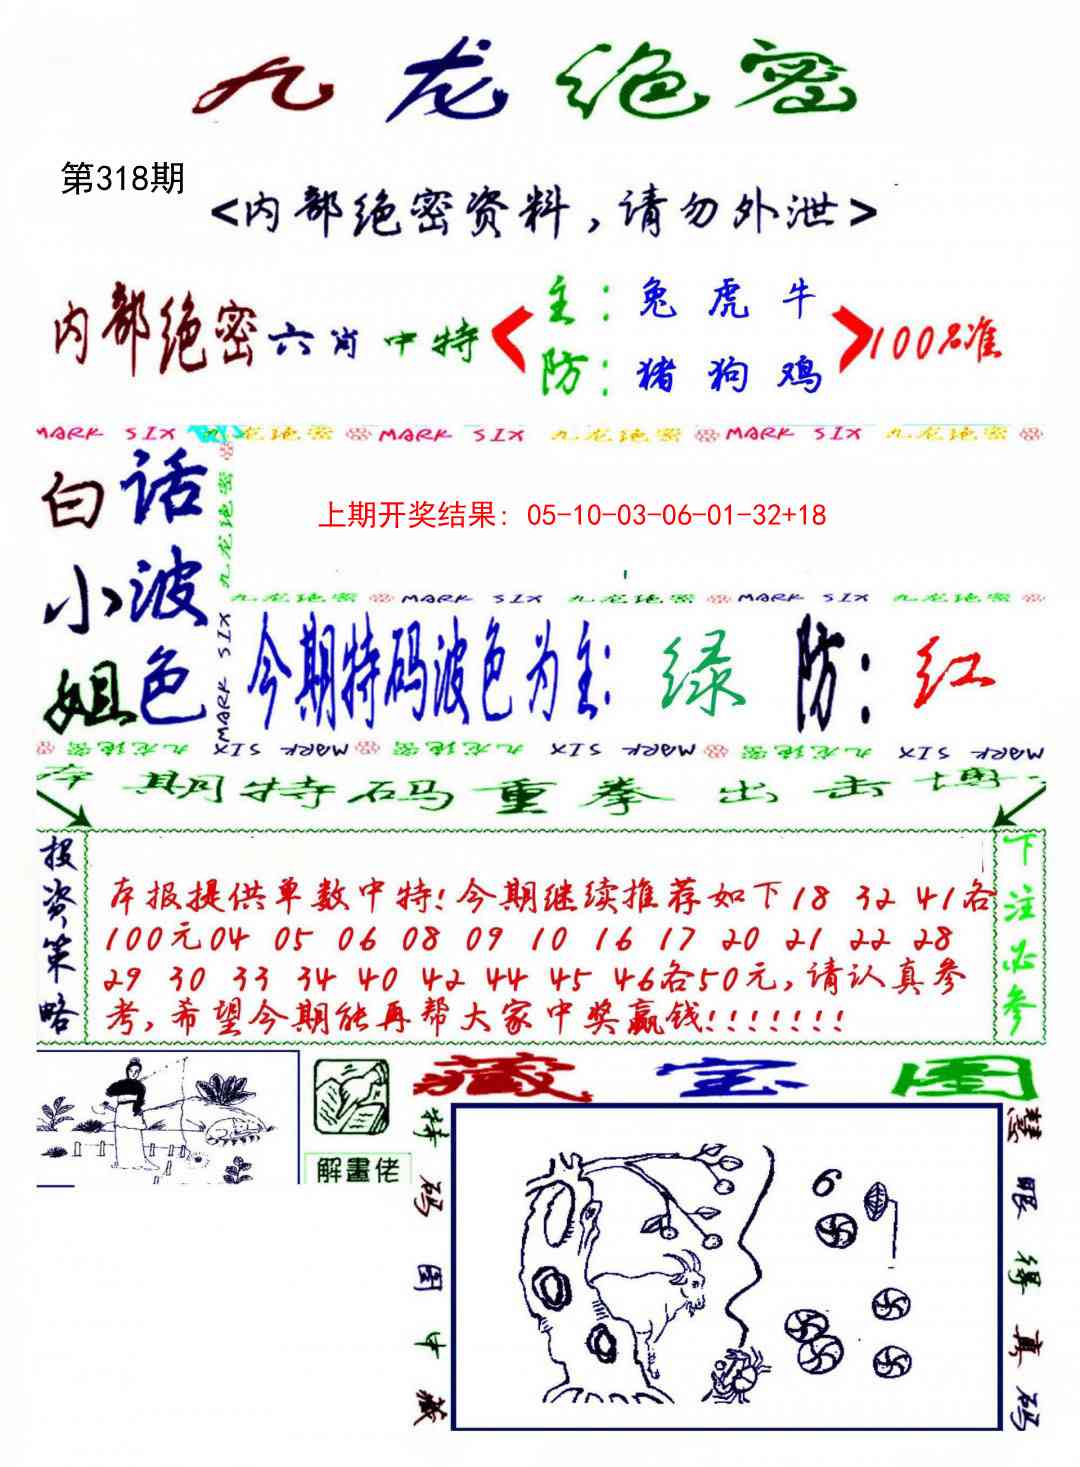 九龙绝密
第318期
<内部绝密资料,请勿外泄>
内部绝密六肖中特
主:兔虎牛
防:猪狗鸡
100%准
MARK SIX 九龙绝密 MARK SIX 九龙绝密 MARK SIX 九龙绝密
白话
小波
姐色
九龙绝密
MARK SIX
上期开奖结果: 05-10-03-06-01-32+18
九龙绝密 MARK SIX 九龙绝密 MARK SIX 九龙绝密
今期特码波色为主:绿 防:红
九龙绝密 MARK SIX 九龙绝密 MARK SIX 九龙绝密 MARK SIX
本期特码重拳出击博
投资策略
本报提供单数中特!今期继续推荐如下18 32 41各
100元04 05 06 08 09 10 16 17 20 21 22 28
29 30 33 34 40 42 44 45 46各50元,请认真参
考,希望今期能再帮大家中奖赢钱!!!!!!!
下注必参
解畫佬
藏宝图
特码图中藏
6
慧眼得真码